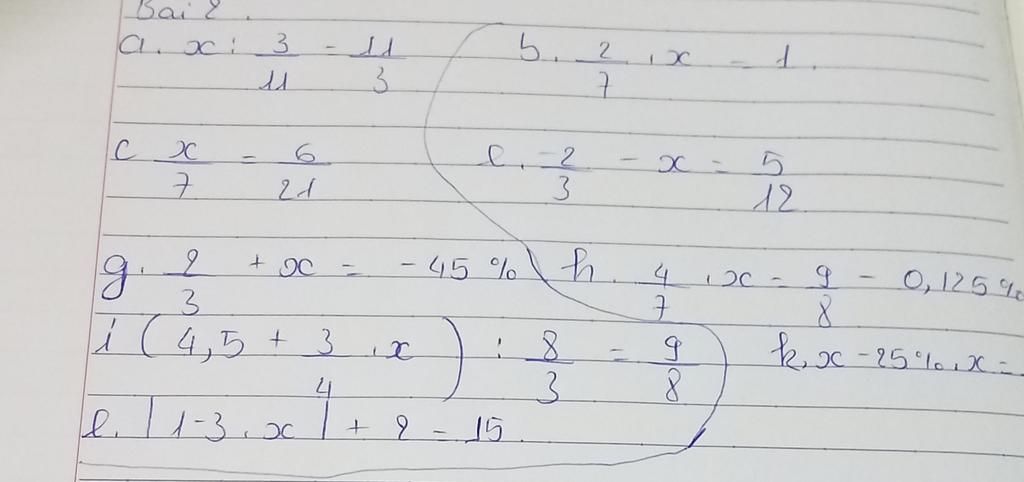 Bài 2.
a. x : 3/11 = 11/3 b. 2/7 . x = 1.
c x/7 = 6/21 e. -2/3 - x = 5/12
g. 2/3 + x = -45% h. 4/7 . x = 9/8 - 0,125%
i (4,5 + 3/4 . x) : 8/3 = 9/8 k, x - 25%. x =
l. |1-3 . x| + 2 = 15